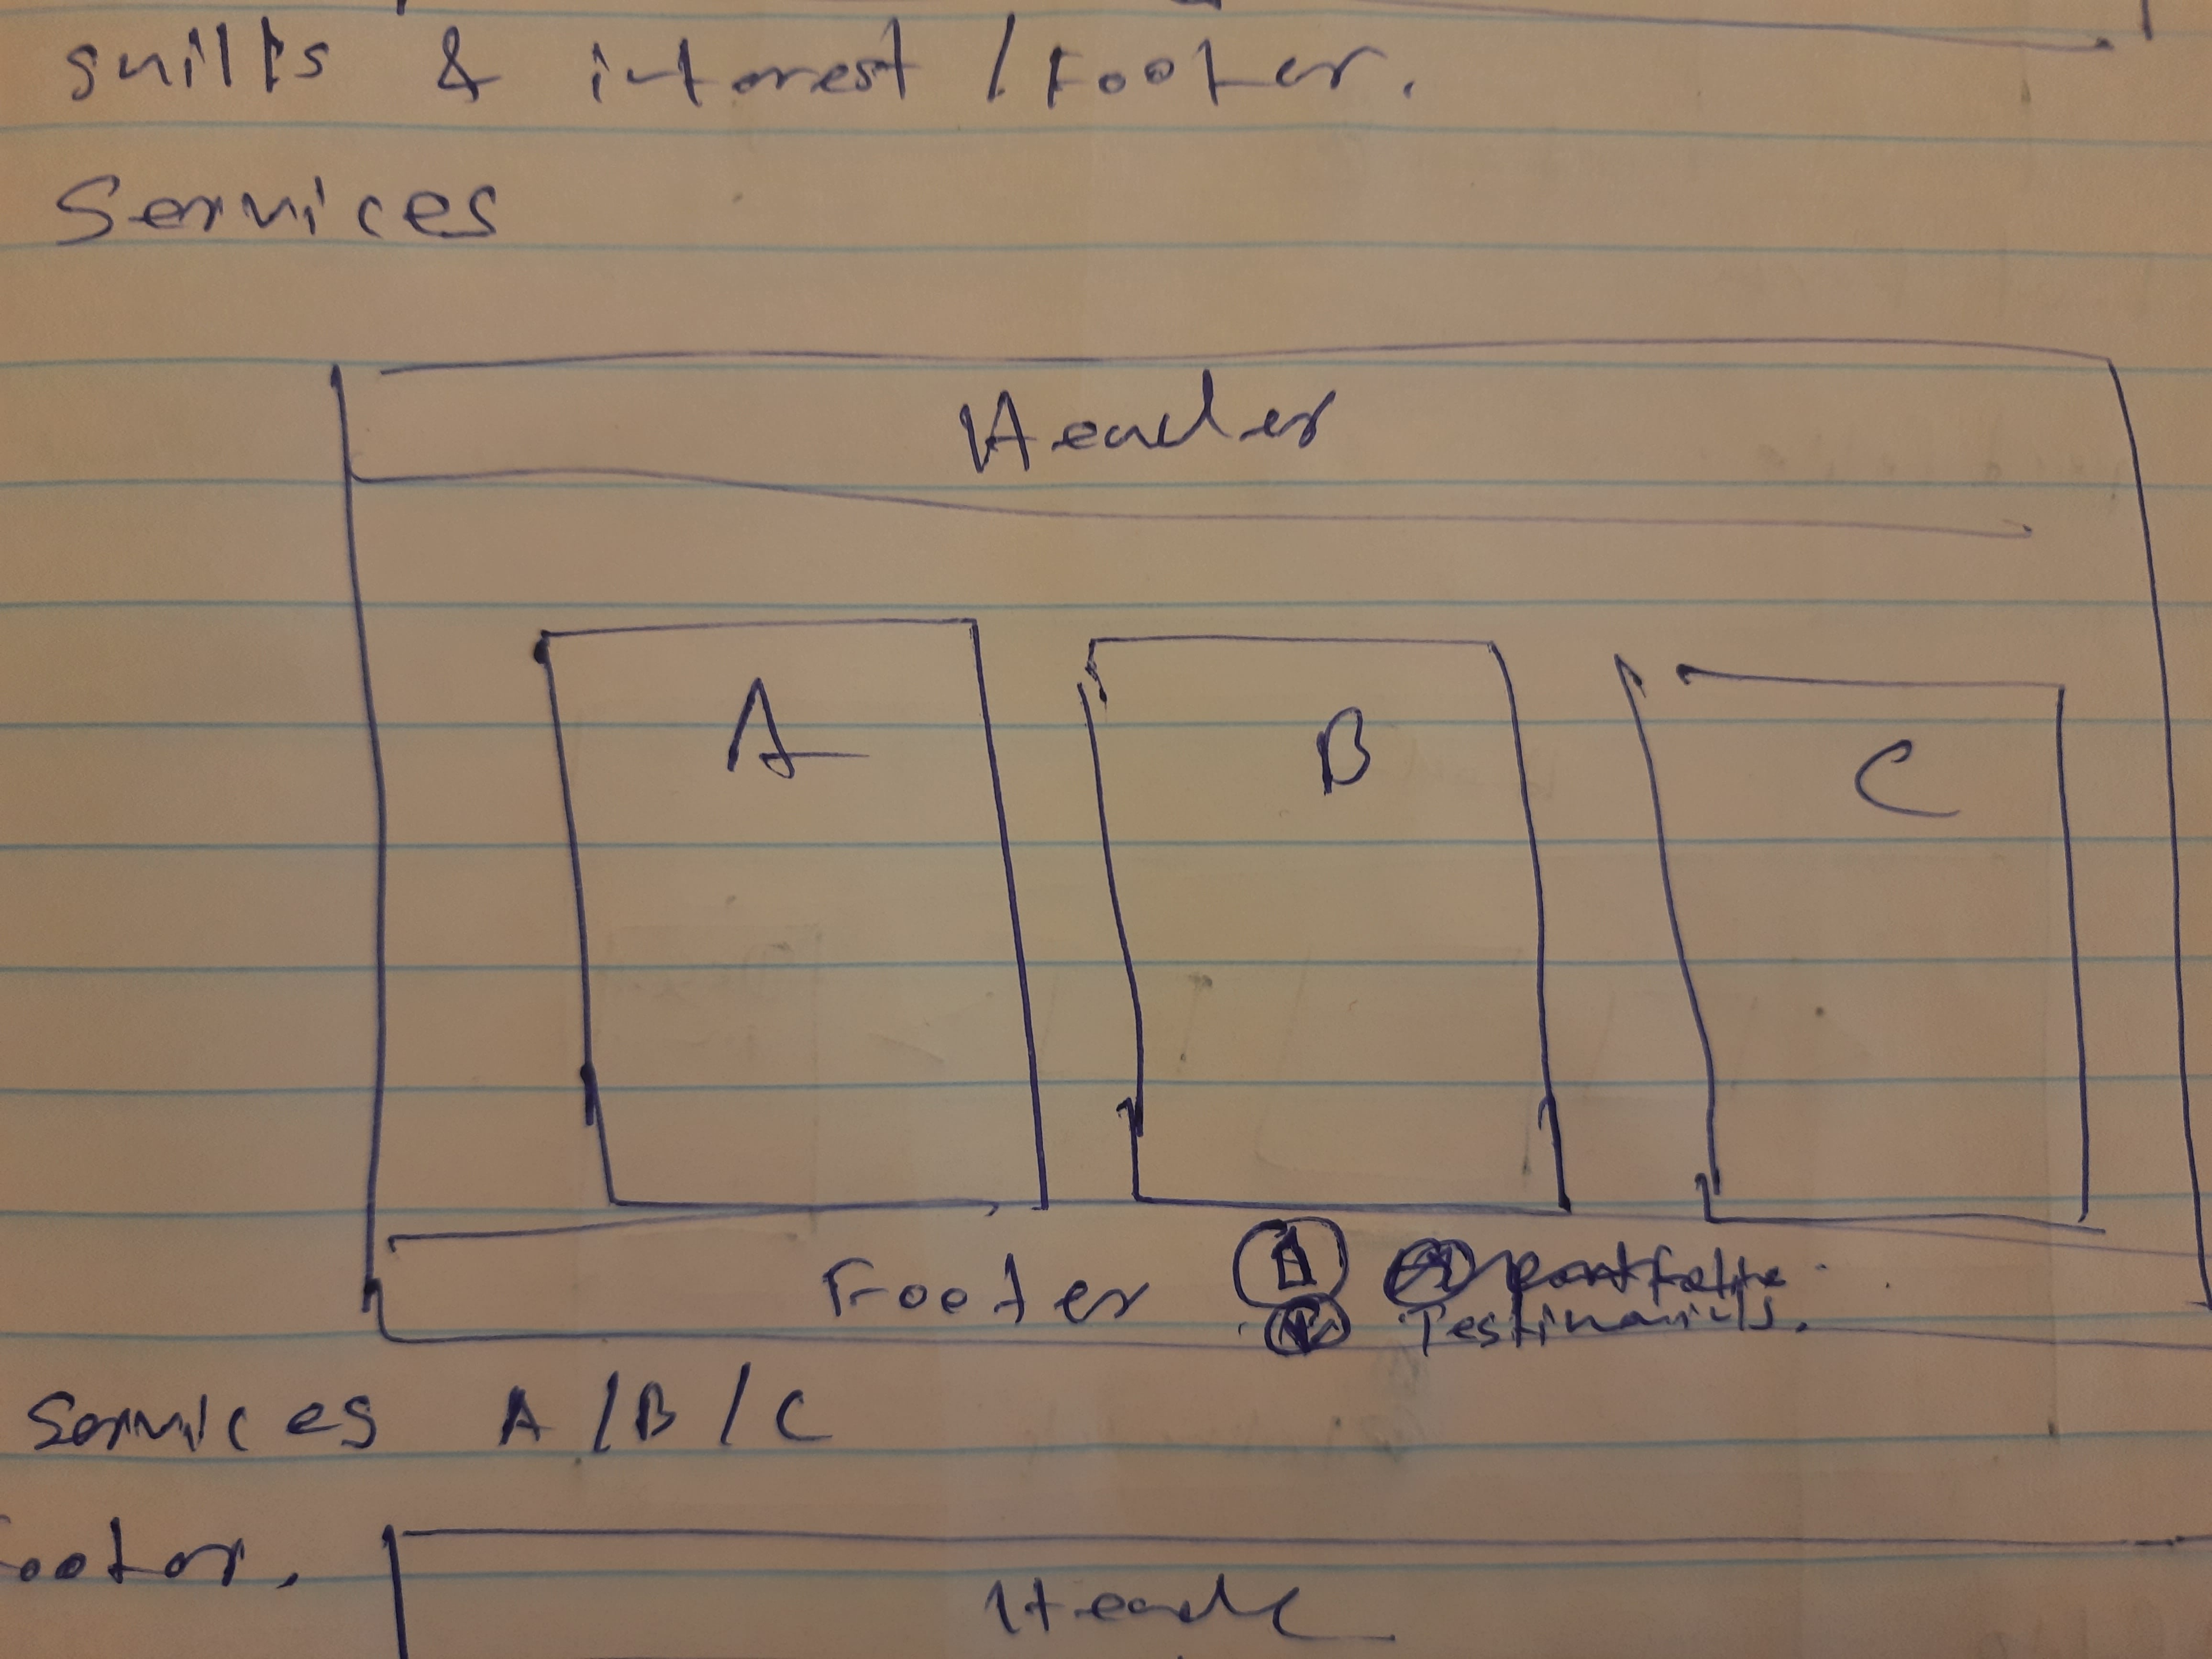 skills & interest / Footer.
Services
Header
A B C
Footer
Testimonials.
Services A / B / C
ooter.
Heade